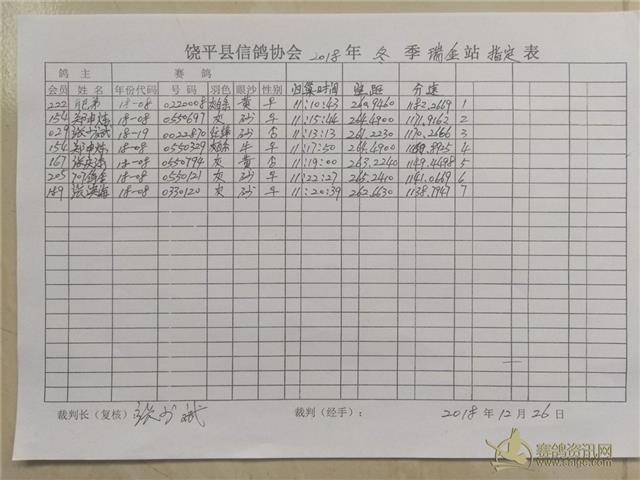 饶平县信鸽协会 2018 年 冬 季 瑞金 站 指定 表
鸽 主 赛 鸽
会员 姓 名 年份代码 号 码 羽色 眼沙 性别 归巢时间 空距 分速
222 18-08 0220008 黄 11:10:43 260.9460 1182.2669 1
154 18-08 0550697 灰 砂 11:15:44 264.4900 1171.9162 2
029 18-19 0022870 砂 11:13:13 261.2230 1170.2666 3
154 18-08 0550329 11:17:50 264.4900 4
167 18-08 0550794 灰 黄 11:19:00 263.2240 1149.4498 5
205 18-08 0550121 灰 砂 11:22:27 265.2410 1141.0669 6
189 18-08 0330120 灰 砂 11:20:39 262.6630 1138.7947 7
裁判长（复核）： 裁判（经手）： 2018 年 12 月 26 日
赛鸽资讯网
www.saige.com